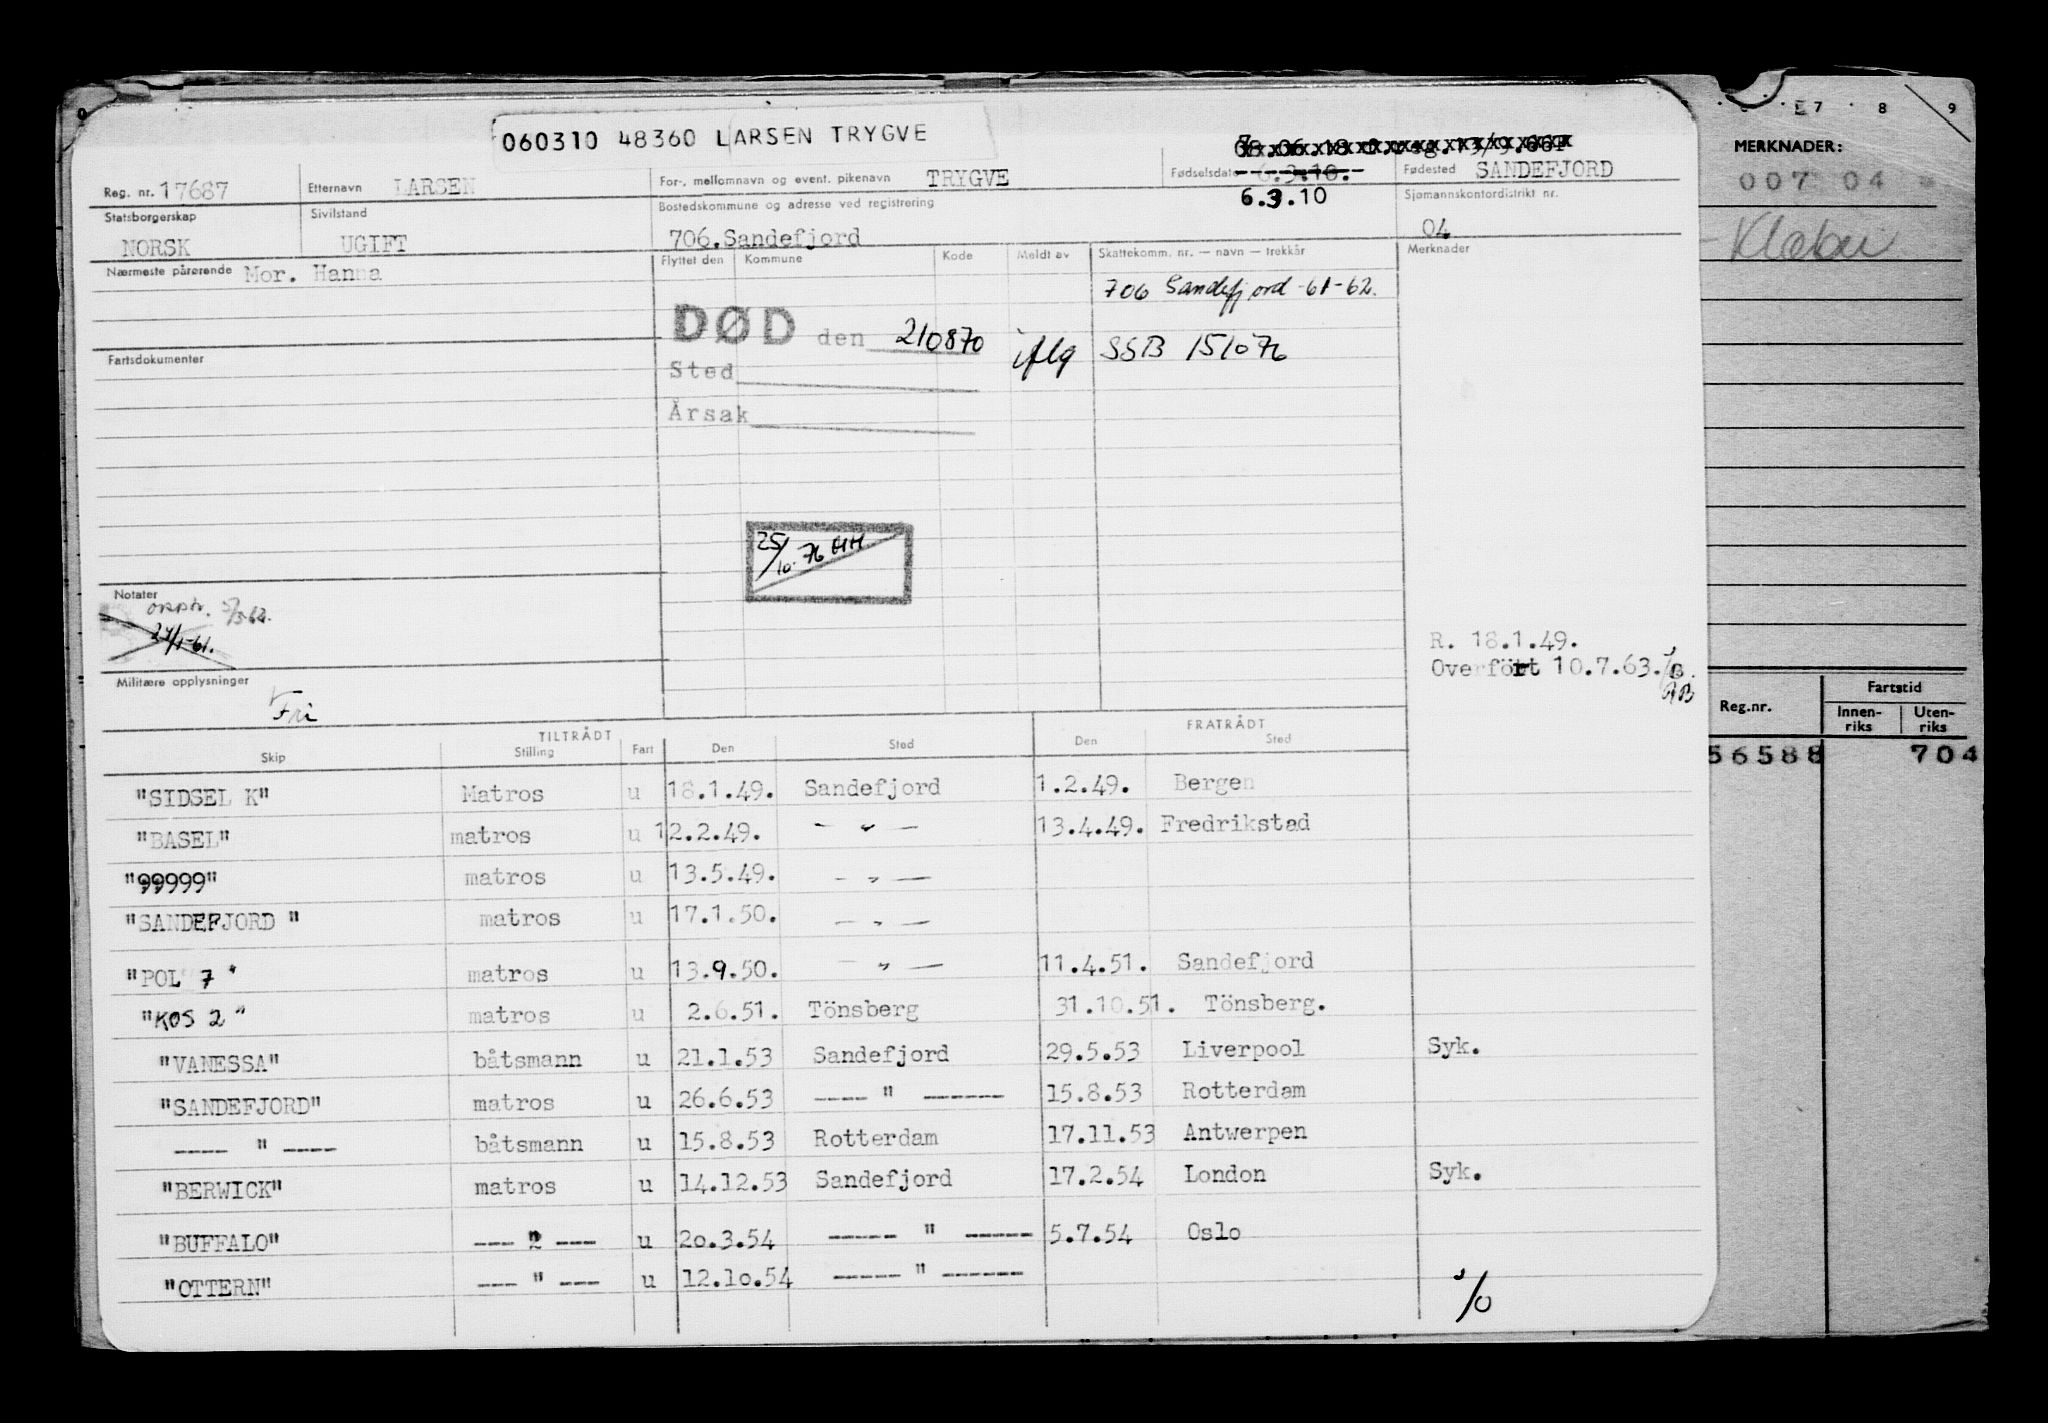 060310 48360 LARSEN TRYGVE
Reg. nr. 17687 Etternavn LARSEN For-, mellomnavn og event. pikenavn TRYGVE Fødselsdato 6.3.10. Fødested SANDEFJORD
6.3.10
Statsborgerskap NORSK Sivilstand UGIFT Bostedskommune og adresse ved registrering 706.Sandefjord Sjømannskontordistrikt nr. 04
Nærmeste pårørende Mor. Hanna Flyttet den Kommune Kode Meldt av Skattekomm. nr. — navn — trekkår Merknader
706 Sandefjord -61-62.
DØD den 210870 iflg SSB 151076
Fartsdokumenter
Sted
Årsak
25/10. 76 HH
Notater
24/1-61.
R. 18.1.49.
Overført 10.7.63.
AB
Militære opplysninger
Fri
TILTRÅDT FRATRÅDT
Skip Stilling Fart Den Sted Den Sted
"SIDSEL K" Matros u 18.1.49. Sandefjord 1.2.49. Bergen
"BASEL" matros u 12.2.49. — " — 13.4.49. Fredrikstad
"99999" matros u 13.5.49. — " —
"SANDEFJORD " matros u 17.1.50. — " —
"POL 7 " matros u 13.9.50. — " — 11.4.51. Sandefjord
"KOS 2 " matros u 2.6.51. Tönsberg 31.10.51. Tönsberg.
"VANESSA" båtsmann u 21.1.53 Sandefjord 29.5.53 Liverpool Syk.
"SANDEFJORD" matros u 26.6.53 ---- " ------ 15.8.53 Rotterdam
---- " ---- båtsmann u 15.8.53 Rotterdam 17.11.53 Antwerpen
"BERWICK" matros u 14.12.53 Sandefjord 17.2.54 London Syk.
"BUFFALO" --- " --- u 2o.3.54 ----- " ----- 5.7.54 Oslo
"OTTERN" --- " --- u 12.1o.54 ----- " ------
7 8 9
MERKNADER:
007 04
Klæbu
Reg.nr. Fartstid
Innen-riks Uten-riks
56588 704